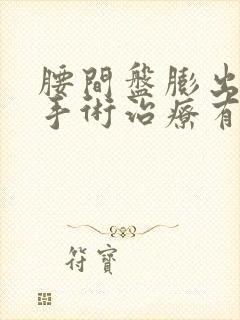 腰間盤膨出
手術治療有
符寶